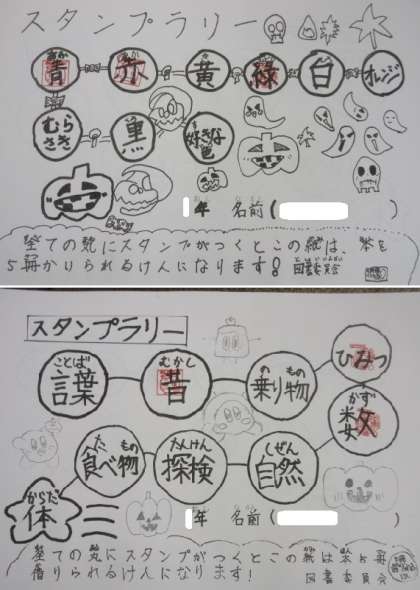 スタンプラリー
あお 青 あか 赤 き 黄 みどり 緑 しろ 白 オレンジ
むらさき 黒 好きな色
1年 名前( )
全ての丸にスタンプがつくとこの紙は、本を
5冊かりられるけんになります! 図書委員会
スタンプラリー
ことば 言葉 むかし 昔 の もの 乗り物 ひみつ
た もの 食べ物 たんけん 探検 しぜん 自然 かず 数
からだ 体
1年 名前( )
全ての丸にスタンプがつくとこの紙は本5冊
借りられるけんになります! 図書委員会